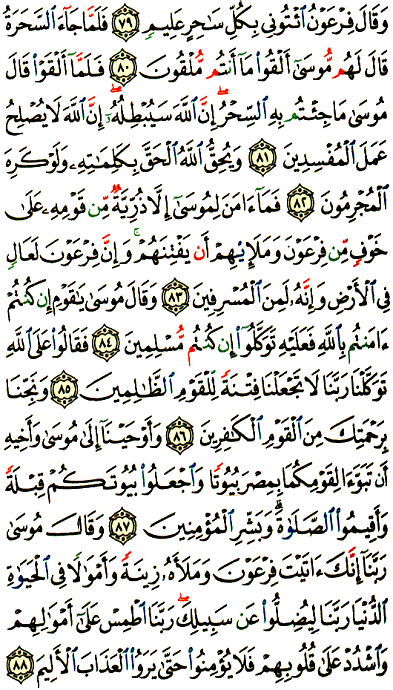 وَقَالَ فِرْعَوْنُ ٱئْتُونِي بِكُلِّ سَٰحِرٍ عَلِيمٍ ٧٩ فَلَمَّا جَآءَ ٱلسَّحَرَةُ
قَالَ لَهُم مُّوسَىٰٓ أَلْقُوا۟ مَآ أَنتُم مُّلْقُونَ ٨٠ فَلَمَّآ أَلْقَوْا۟ قَالَ
مُوسَىٰ مَا جِئْتُم بِهِ ٱلسِّحْرُ ۖ إِنَّ ٱللَّهَ سَيُبْطِلُهُۥٓ ۖ إِنَّ ٱللَّهَ لَا يُصْلِحُ
عَمَلَ ٱلْمُفْسِدِينَ ٨١ وَيُحِقُّ ٱللَّهُ ٱلْحَقَّ بِكَلِمَٰتِهِۦ وَلَوْ كَرِهَ
ٱلْمُجْرِمُونَ ٨٢ فَمَآ ءَامَنَ لِمُوسَىٰٓ إِلَّا ذُرِّيَّةٌ مِّن قَوْمِهِۦ عَلَىٰ
خَوْفٍ مِّن فِرْعَوْنَ وَمَلَإِي۟هِمْ أَن يَفْتِنَهُمْ ۚ وَإِنَّ فِرْعَوْنَ لَعَالٍ
فِي ٱلْأَرْضِ وَإِنَّهُۥ لَمِنَ ٱلْمُسْرِفِينَ ٨٣ وَقَالَ مُوسَىٰ يَٰقَوْمِ إِن كُنتُمْ
ءَامَنتُم بِٱللَّهِ فَعَلَيْهِ تَوَكَّلُوٓا۟ إِن كُنتُم مُّسْلِمِينَ ٨٤ فَقَالُوا۟ عَلَى ٱللَّهِ
تَوَكَّلْنَا رَبَّنَا لَا تَجْعَلْنَا فِتْنَةً لِّلْقَوْمِ ٱلظَّٰلِمِينَ ٨٥ وَنَجِّنَا
بِرَحْمَتِكَ مِنَ ٱلْقَوْمِ ٱلْكَٰفِرِينَ ٨٦ وَأَوْحَيْنَآ إِلَىٰ مُوسَىٰ وَأَخِيهِ
أَن تَبَوَّءَا لِقَوْمِكُمَا بِمِصْرَ بُيُوتًا وَٱجْعَلُوا۟ بُيُوتَكُمْ قِبْلَةً
وَأَقِيمُوا۟ ٱلصَّلَوٰةَ ۗ وَبَشِّرِ ٱلْمُؤْمِنِينَ ٨٧ وَقَالَ مُوسَىٰ
رَبَّنَآ إِنَّكَ ءَاتَيْتَ فِرْعَوْنَ وَمَلَأَهُۥ زِينَةً وَأَمْوَٰلًا فِي ٱلْحَيَوٰةِ
ٱلدُّنْيَا رَبَّنَا لِيُضِلُّوا۟ عَن سَبِيلِكَ ۖ رَبَّنَا ٱطْمِسْ عَلَىٰٓ أَمْوَٰلِهِمْ
وَٱشْدُدْ عَلَىٰ قُلُوبِهِمْ فَلَا يُؤْمِنُوا۟ حَتَّىٰ يَرَوُا۟ ٱلْعَذَابَ ٱلْأَلِيمَ ٨٨